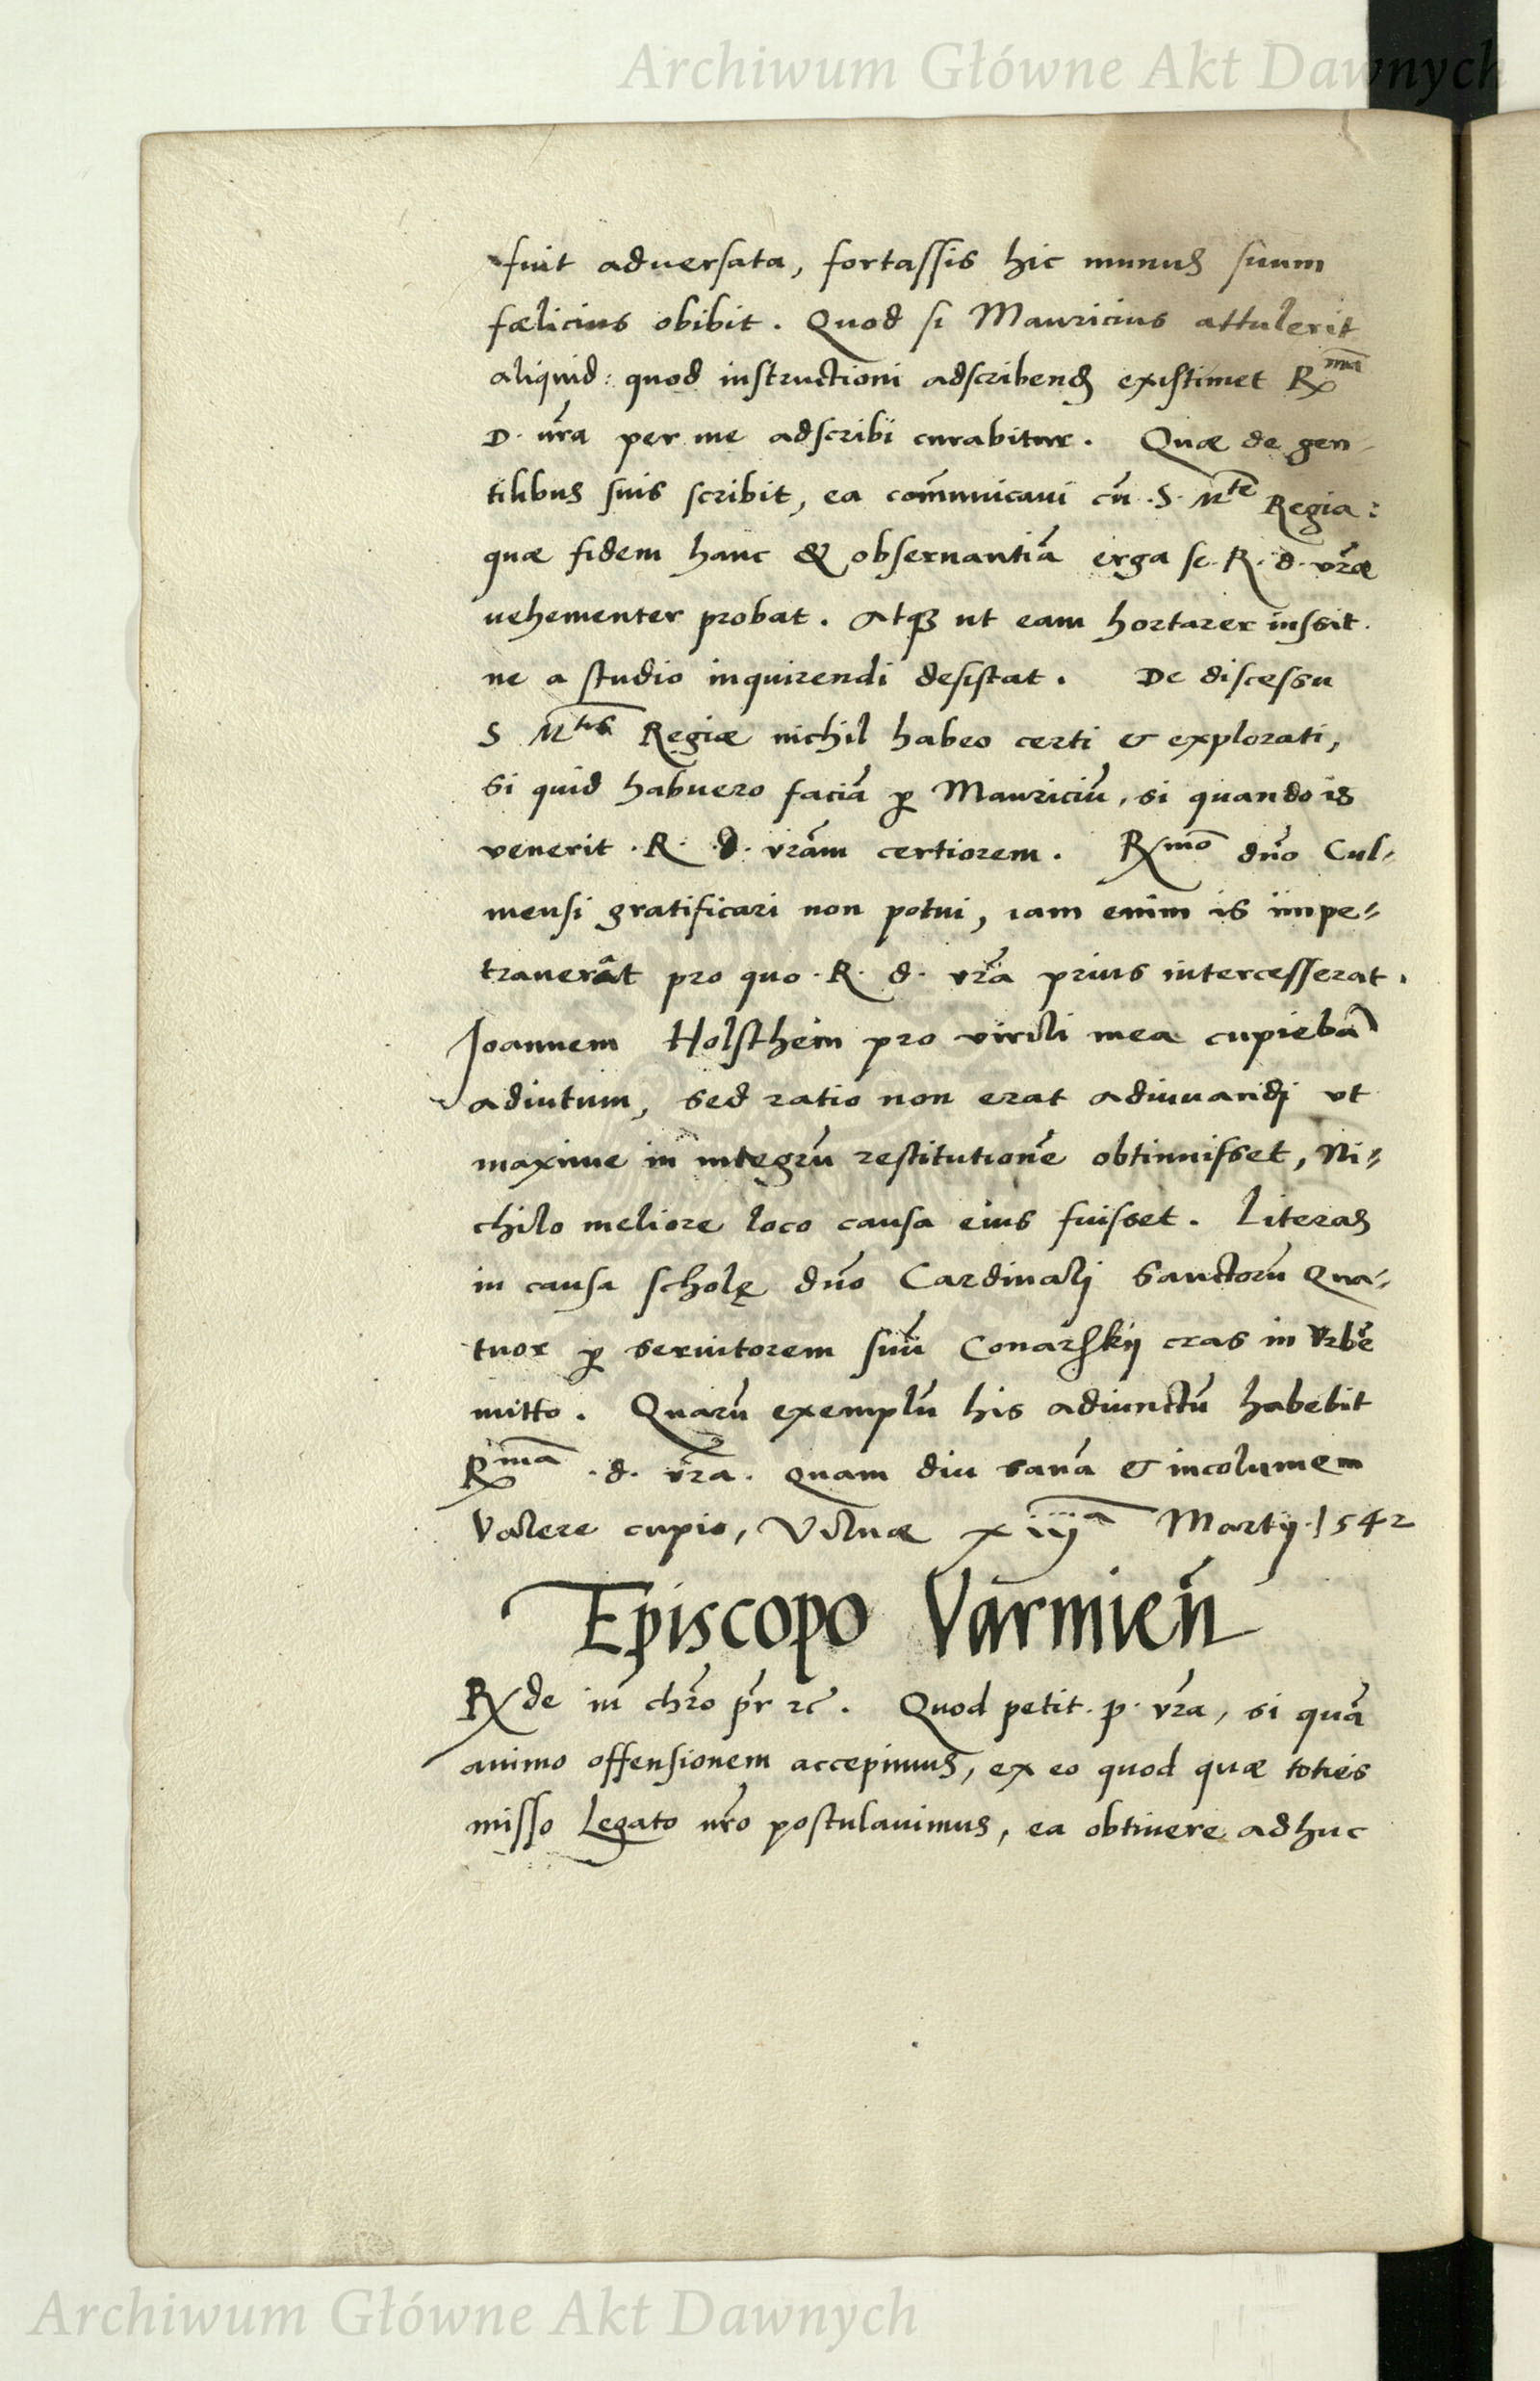 Archiwum Główne Akt Dawnych
fuit aduersata, fortassis hic munus suum
fœlicius obibit. Quod si Mauricius attulerit
aliquid: quod instructioni adscribend existimet Rma
D. vra per me adscribi curabitur. Quæ de gen-
tilibus suis scribit, ea comunicaui cũ .S. Mte Regia:
quæ fidem hanc & obseruantiã erga se .R. d. vræ
uehementer probat. Atq; ut eam hortarer iussit
ne a studio inquirendi desistat. De discessu
S Mtis Regiæ nichil habeo certi & explorati,
si quid habuero faciã p Mauriciũ, si quando is
venerit .R. D. vram certiorem. Rmo dno Cul-
mensi gratificari non potui, iam enim is impe-
trauerat pro quo .R. d. vra prius intercesserat.
Joannem Holsthein pro virili mea cupiebã
adiutum, sed ratio non erat adiuuandi vt
maxime in integrũ restitutionẽ obtinuisset, Ni-
chilo meliore loco causa eius fuisset. Literas
in causa scholę dno Cardinali Sanctorũ Qua-
tuor p seruitorem suũ Conarskij cras in Vrbẽ
mitto. Quarũ exemplũ his adiunctũ habebit
Rma .d. vra. quam diu sanã & incolumem
Valere cupio, Vilnæ xiija Martij. 1542
Episcopo Varmien
Rde in chro pr rc. Quod petit .p. vra, si quã
animo offensionem accepimus, ex eo quod quæ toties
misso Legato nro postulauimus, ea obtinere adhuc
Archiwum Główne Akt Dawnych